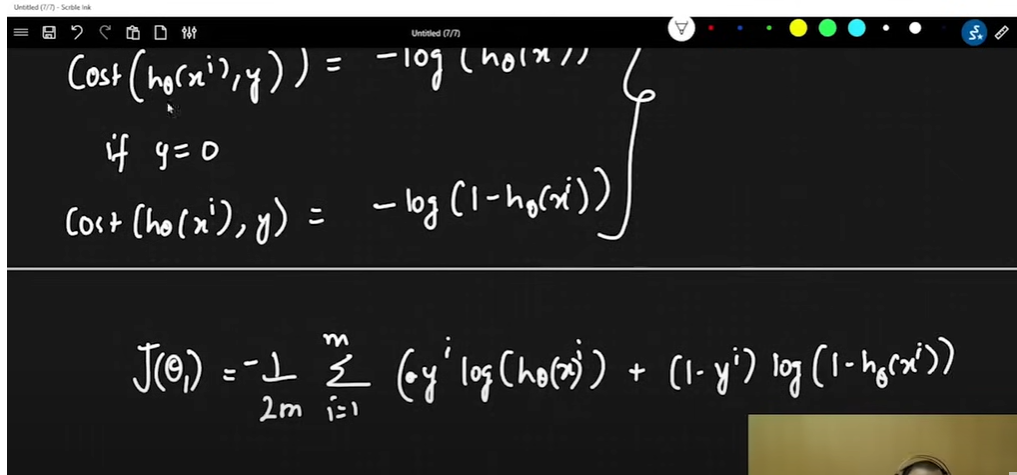 Untitled (7/7) - Scrble Ink
Untitled (7/7)
Cost(hθ(xⁱ), y)) = -log(hθ(x))
if y = 0
Cost(hθ(xⁱ), y) = -log(1-hθ(xⁱ))
J(θ₁) = -1/2m Σᵢ₌₁ᵐ (yⁱ log(hθ(x)ⁱ) + (1-yⁱ) log(1-hθ(xⁱ))